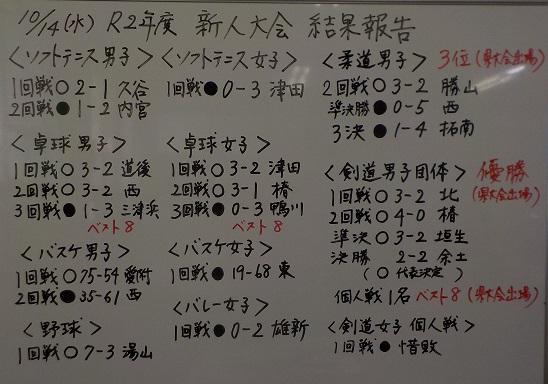 10/14(水) R2年度 新人大会 結果報告
<ソフトテニス男子>
1回戦○2-1 久谷
2回戦●1-2 内宮
<卓球男子>
1回戦○3-2 道後
2回戦○3-2 西
3回戦●1-3 三津浜
ベスト8
<バスケ男子>
1回戦○75-54 愛附
2回戦●35-61 西
<野球>
1回戦○7-3 湯山
<ソフトテニス女子>
1回戦●0-3 津田
<卓球女子>
1回戦○3-2 津田
2回戦○3-1 椿
3回戦●0-3 鴨川
ベスト8
<バスケ女子>
1回戦●19-68 東
<バレー女子>
1回戦●0-2 雄新
<柔道男子> 3位(県大会出場)
2回戦○3-2 勝山
準決勝●0-5 西
3決●1-4 拓南
<剣道男子団体> 優勝
(県大会出場)
1回戦○3-2 北
2回戦○4-0 椿
準決○3-2 垣生
決勝 2-2 余土
(○代表決定)
個人戦1名 ベスト8(県大会出場)
<剣道女子 個人戦>
1回戦● 惜敗